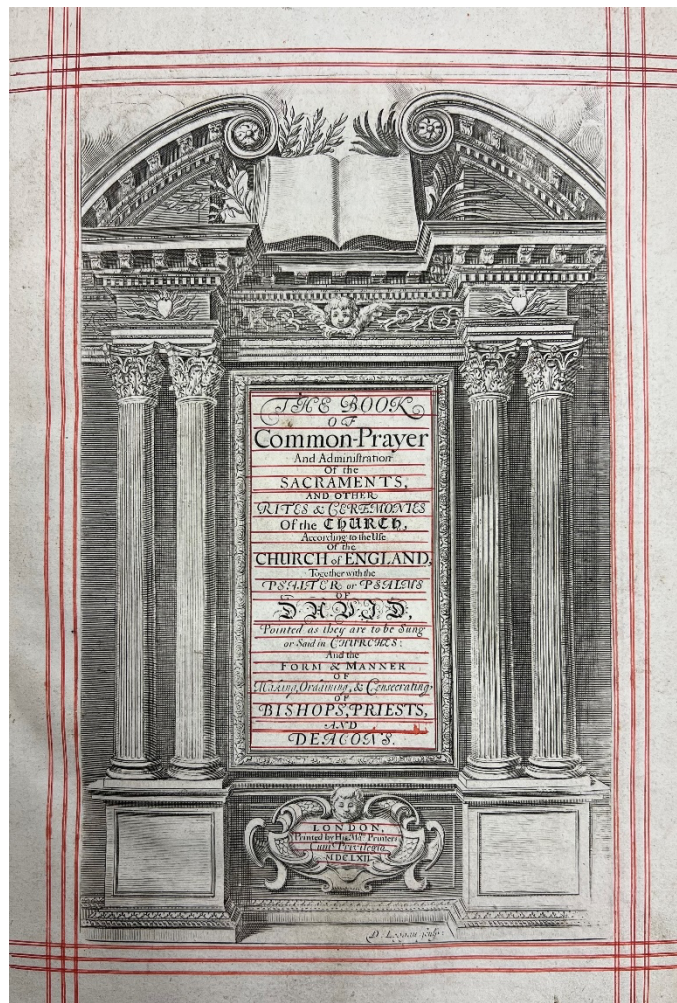 THE BOOK
OF
Common-Prayer
And Administration
Of the
SACRAMENTS,
AND OTHER
RITES & CEREMONIES
Of the CHURCH,
According to the Use
Of the
CHURCH of ENGLAND,
Together with the
PSALTER or PSALMS
OF
DAVID,
Pointed as they are to be Sung
or Said in CHURCHES:
And the
FORM & MANNER
OF
Making, Ordaining, & Consecrating
OF
BISHOPS, PRIESTS,
AND
DEACONS.
LONDON,
Printed by His Printers
Cum Privilegio
MDCLXII
D. Loggan sculp: